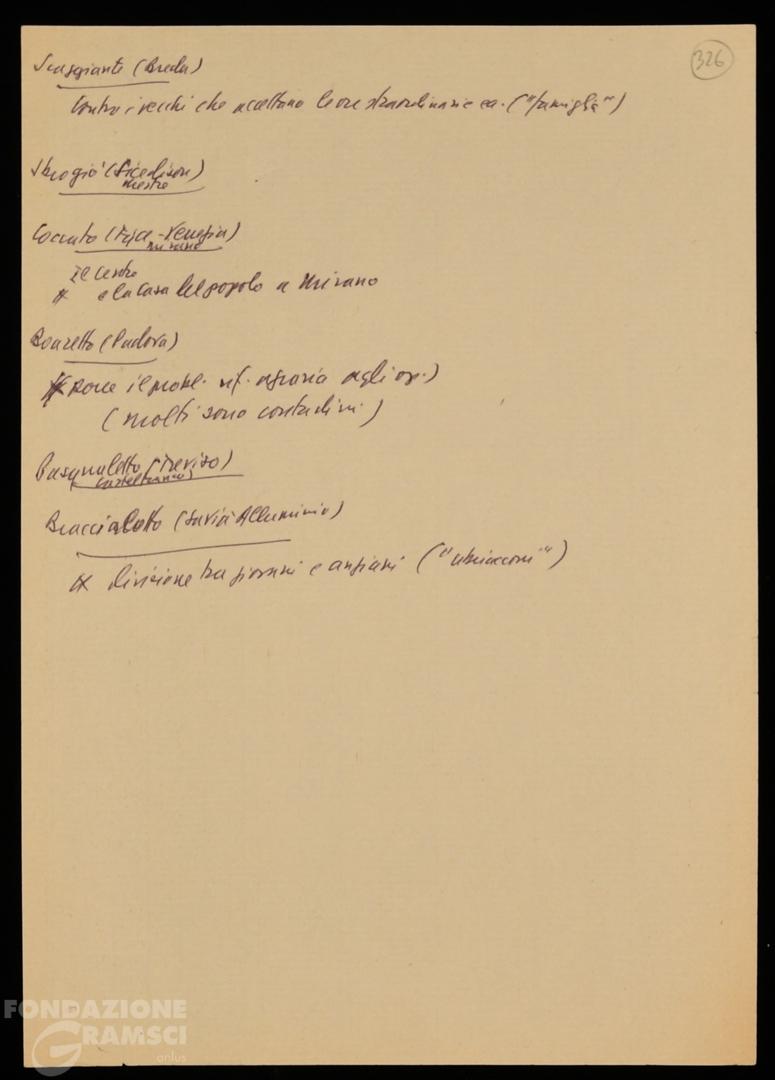 326
Scaggiante (Breda)
Contro i vecchi che accettano le ore straordinarie ecc. ("famiglia")
Sbrogiò (Sicedison)
mestre
Coccato (
Venezia)
mirano
Il Centro
e la Casa del popolo a Mirano
Boaretto (Padova)
Porre il probl. rif. agraria agli op.)
(molti sono contadini)
Pasqualetto (Treviso)
Castelfranco)
Braccialotto (Savia Alluminio)
divisione tra giovani e anziani ("ubriaconi")
FONDAZIONE
GRAMSCI
onlus